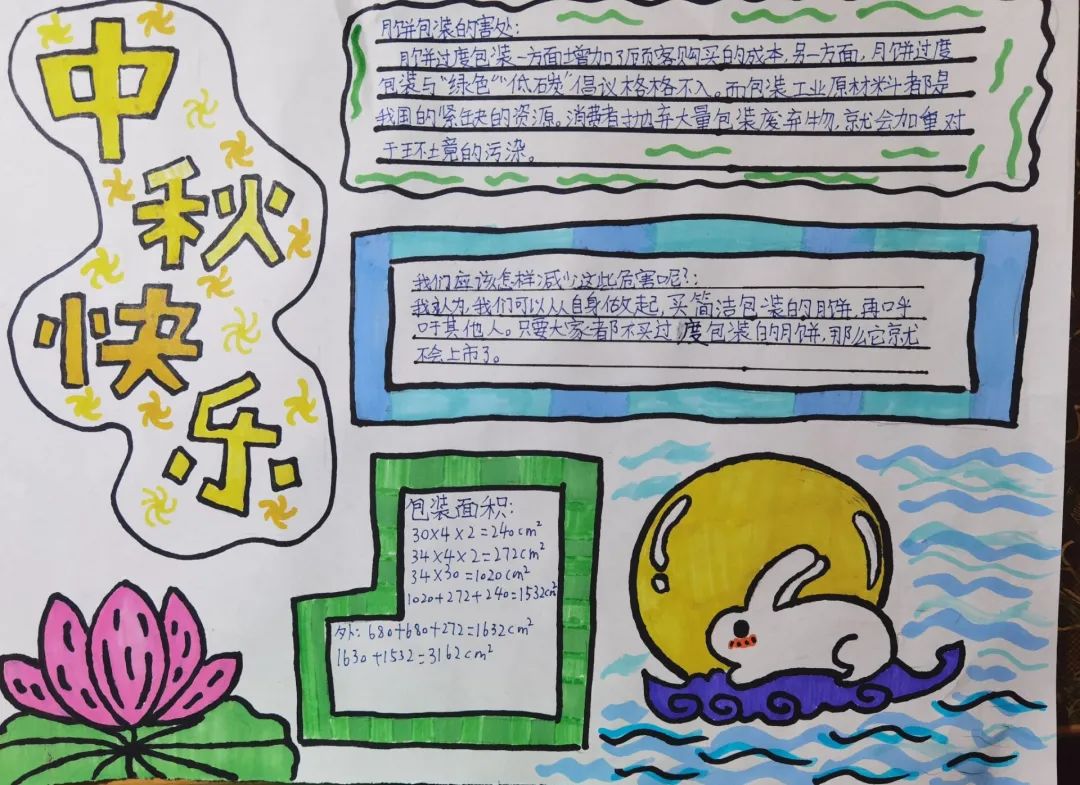 中
秋
快
乐
月饼包装的害处:
月饼过度包装一方面增加了顾客购买的成本,另一方面,月饼过度
包装与“绿色”“低碳”倡议格格不入。而包装工业原材料都是
我国的紧缺的资源。消费者抛弃大量包装废弃物,就会加重对
于环境的污染。
我们应该怎样减少这些危害呢?:
我认为,我们可以从自身做起,买简洁包装的月饼,再呼
吁其他人。只要大家都不买过度包装的月饼,那么它就
不会上市了。
包装面积:
30×4×2=240cm²
34×4×2=272cm²
34×30=1020cm²
1020+272+240=1532cm²
外:680+680+272=1632cm²
1630+1532=3162cm²